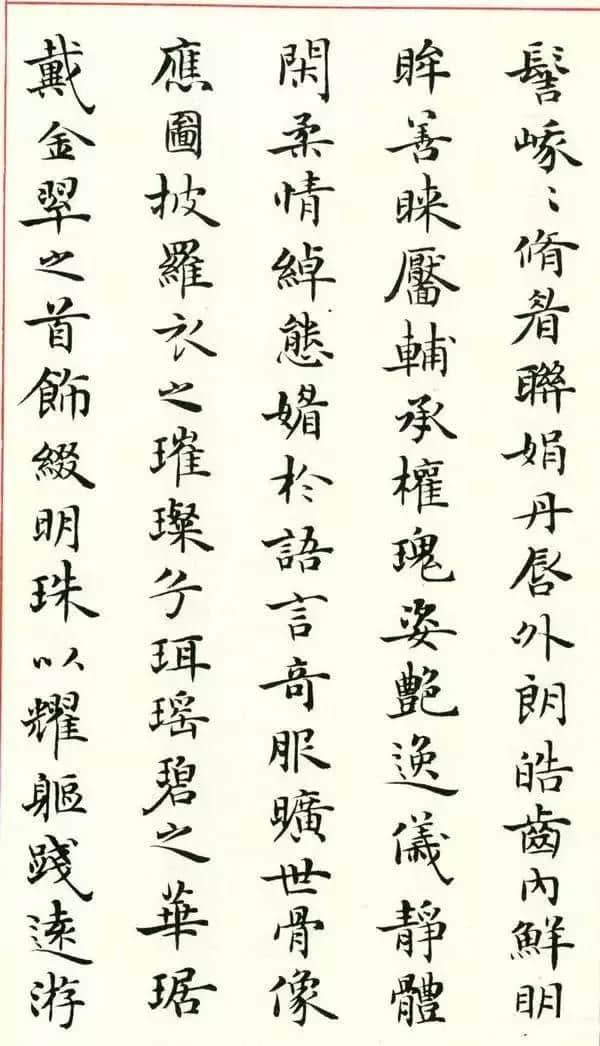 髻峩〻脩眉聯娟丹唇外朗皓齒內鮮明
眸善睞靨輔承權瑰姿艷逸儀靜體
閑柔情綽態媚於語言奇服曠世骨像
應圖披羅衣之璀璨兮珥瑤碧之華琚
戴金翠之首飾綴明珠以耀軀踐遠游